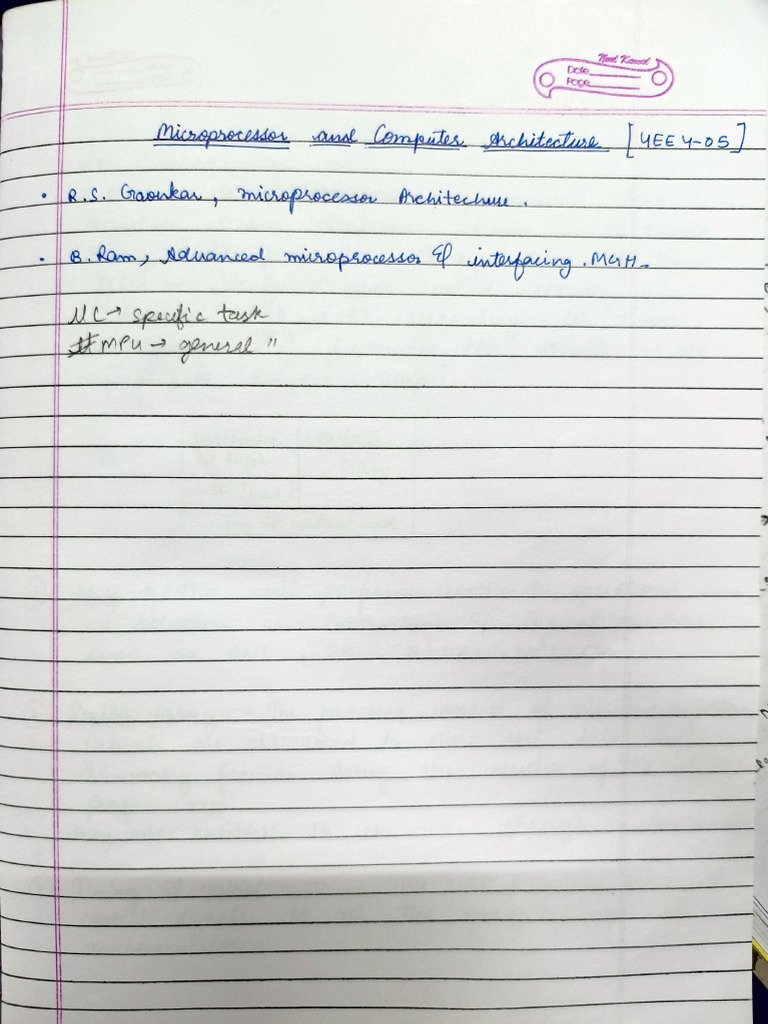 Neel Kamal
Date
Page
Microprocessor and Computer Architecture [4EE4-05]
• R.S. Gaonkar, microprocessor Architechure.
• B. Ram, Advanced microprocessor & interfacing. MGH.
MC → specific task
# MPU → general "